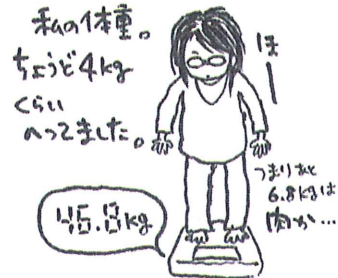 私の体重。
ちょうど4kg
くらい
へってました。
ほー
つまりあと
6.8kgは
肉か…
45.8kg